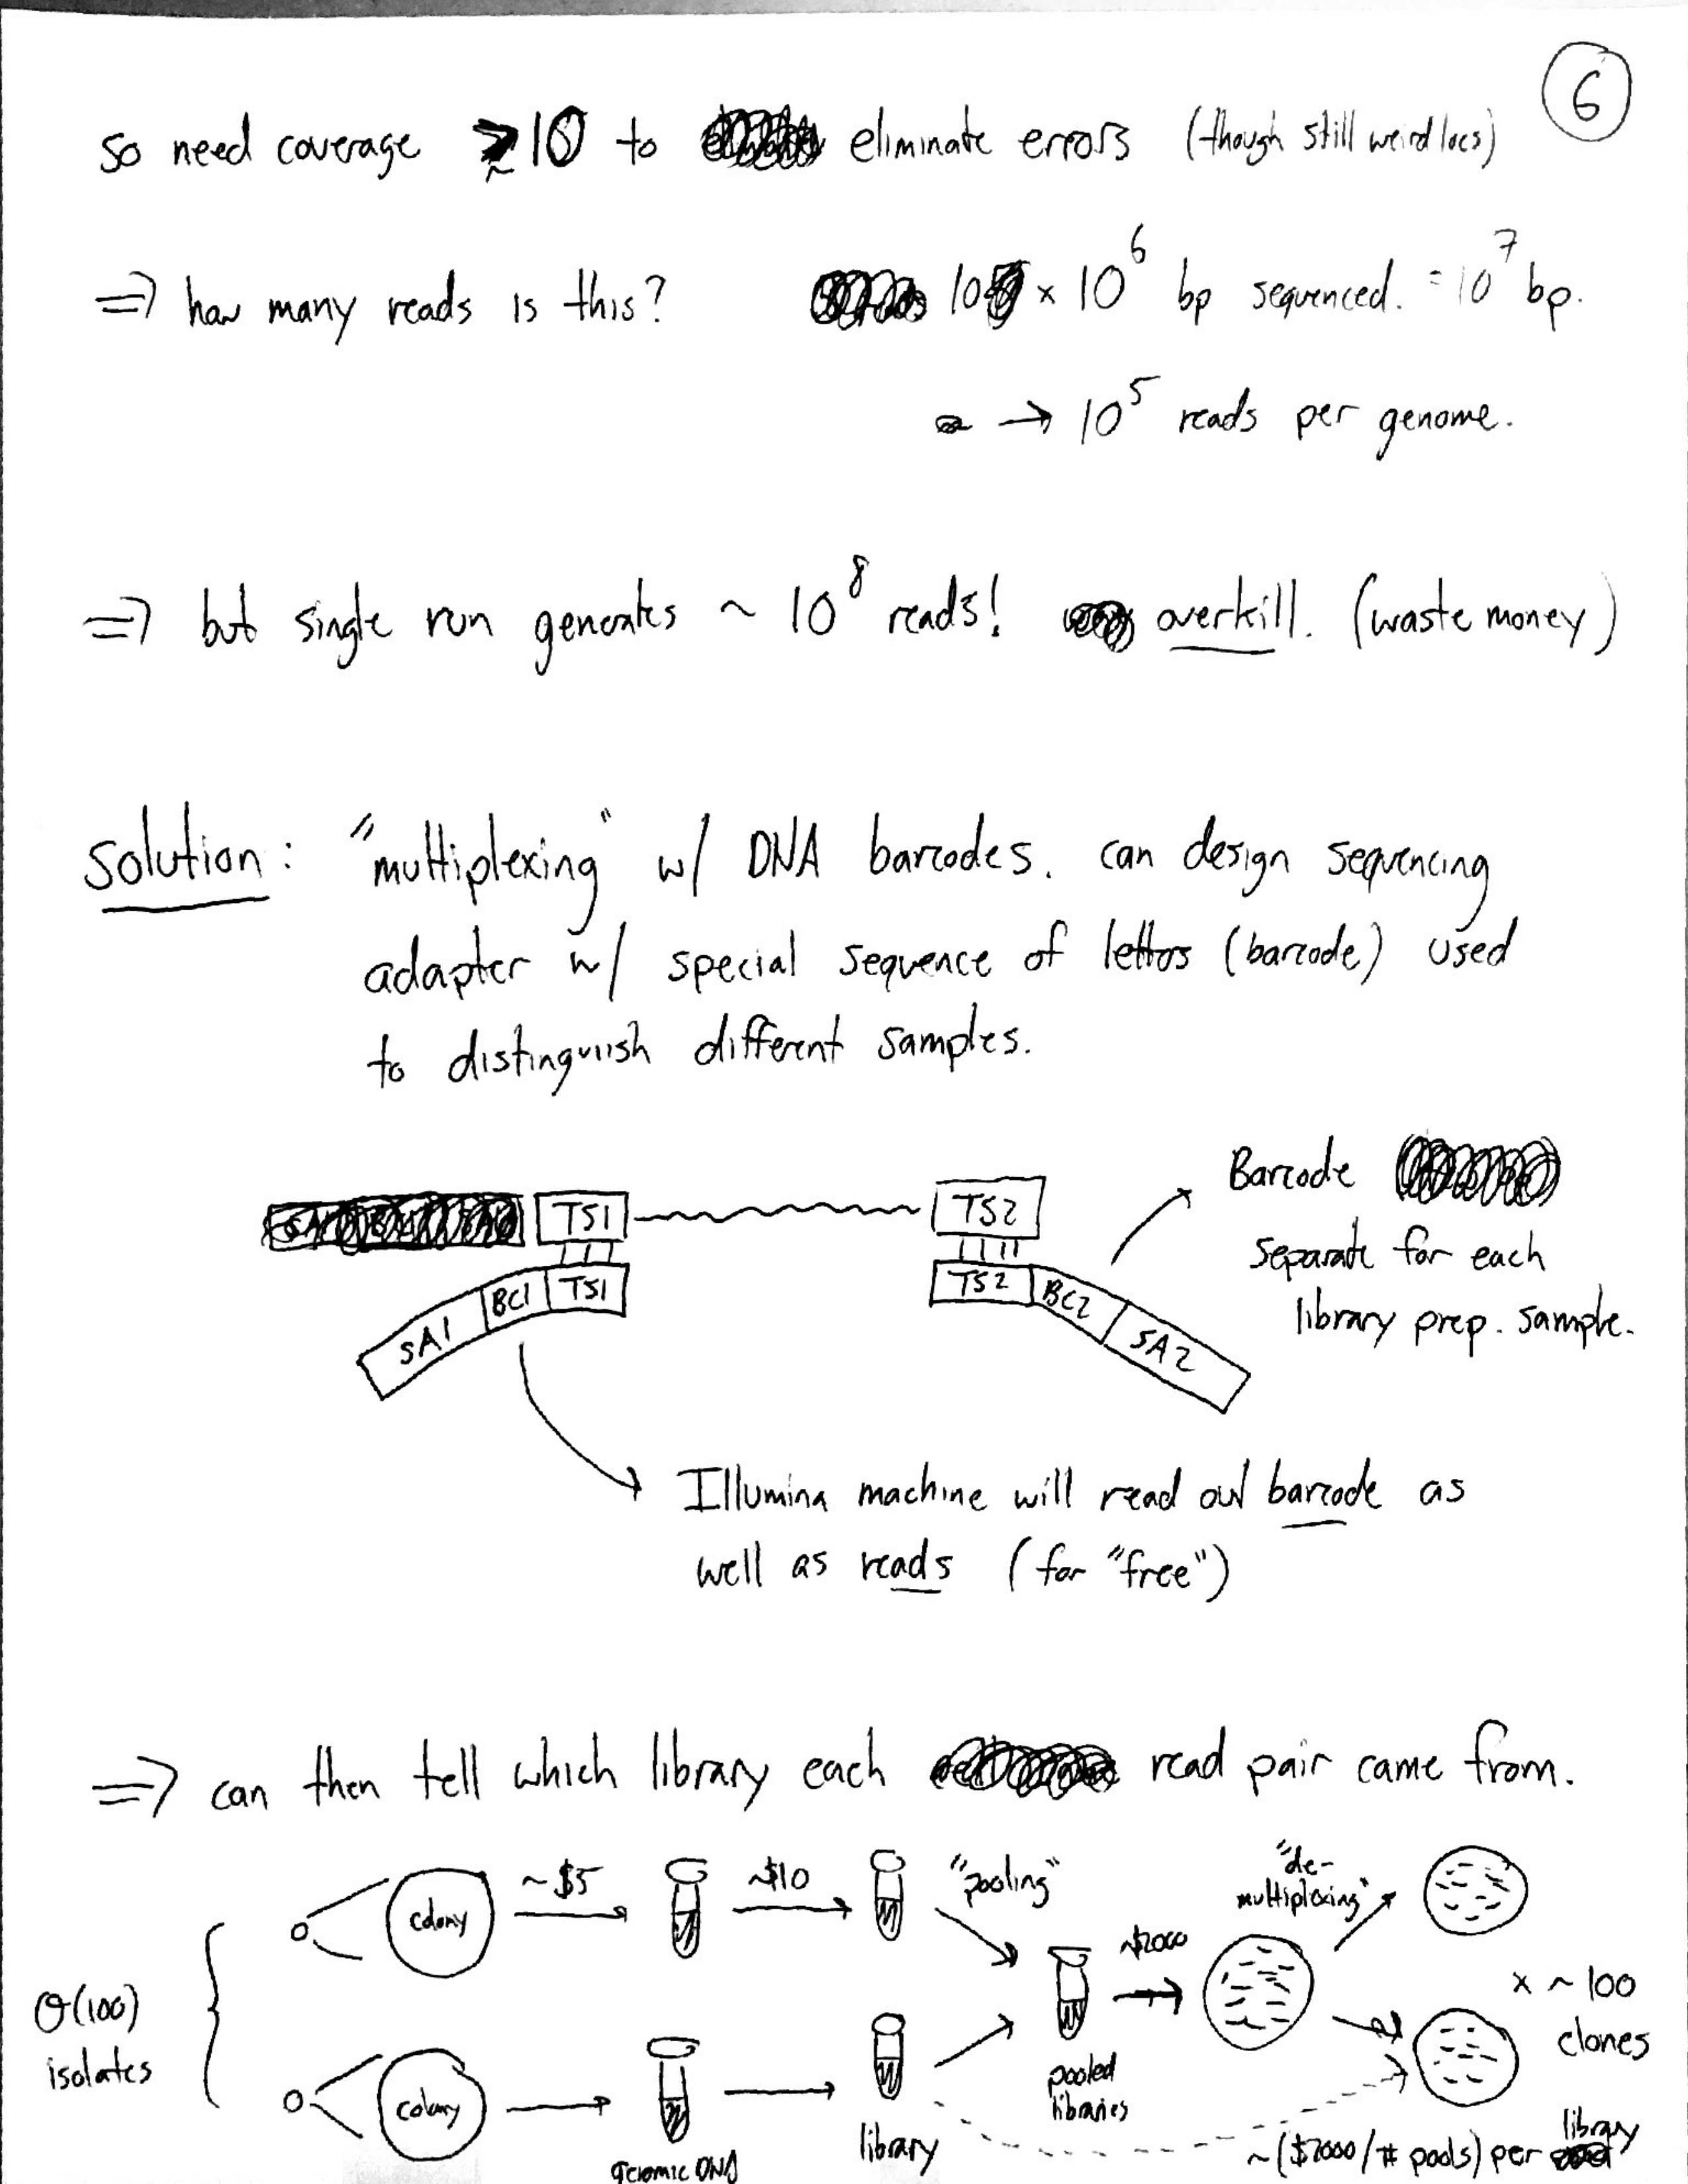 6
so need coverage ≳10 to eliminate errors (though still weird locs)
⇒ how many reads is this? 10 × 10⁶ bp sequenced. = 10⁷ bp.
→ 10⁵ reads per genome.
⇒ but single run generates ~ 10⁸ reads! overkill. (waste money)
solution: "multiplexing" w/ DNA barcodes. can design sequencing
adapter w/ special sequence of letters (barcode) used
to distinguish different samples.
Barcode
separate for each
library prep. sample.
TS1 TS2
SA1 BC1 TS1 TS2 BC2 SA2
Illumina machine will read out barcode as
well as reads (for "free")
⇒ can then tell which library each read pair came from.
O(100)
isolates
colony ~$5 ~$10 "pooling" ~$2000 "de-
multiplexing"
x ~ 100
clones
colony
genomic DNA
library
pooled
libraries
~($2000 / # pools) per library